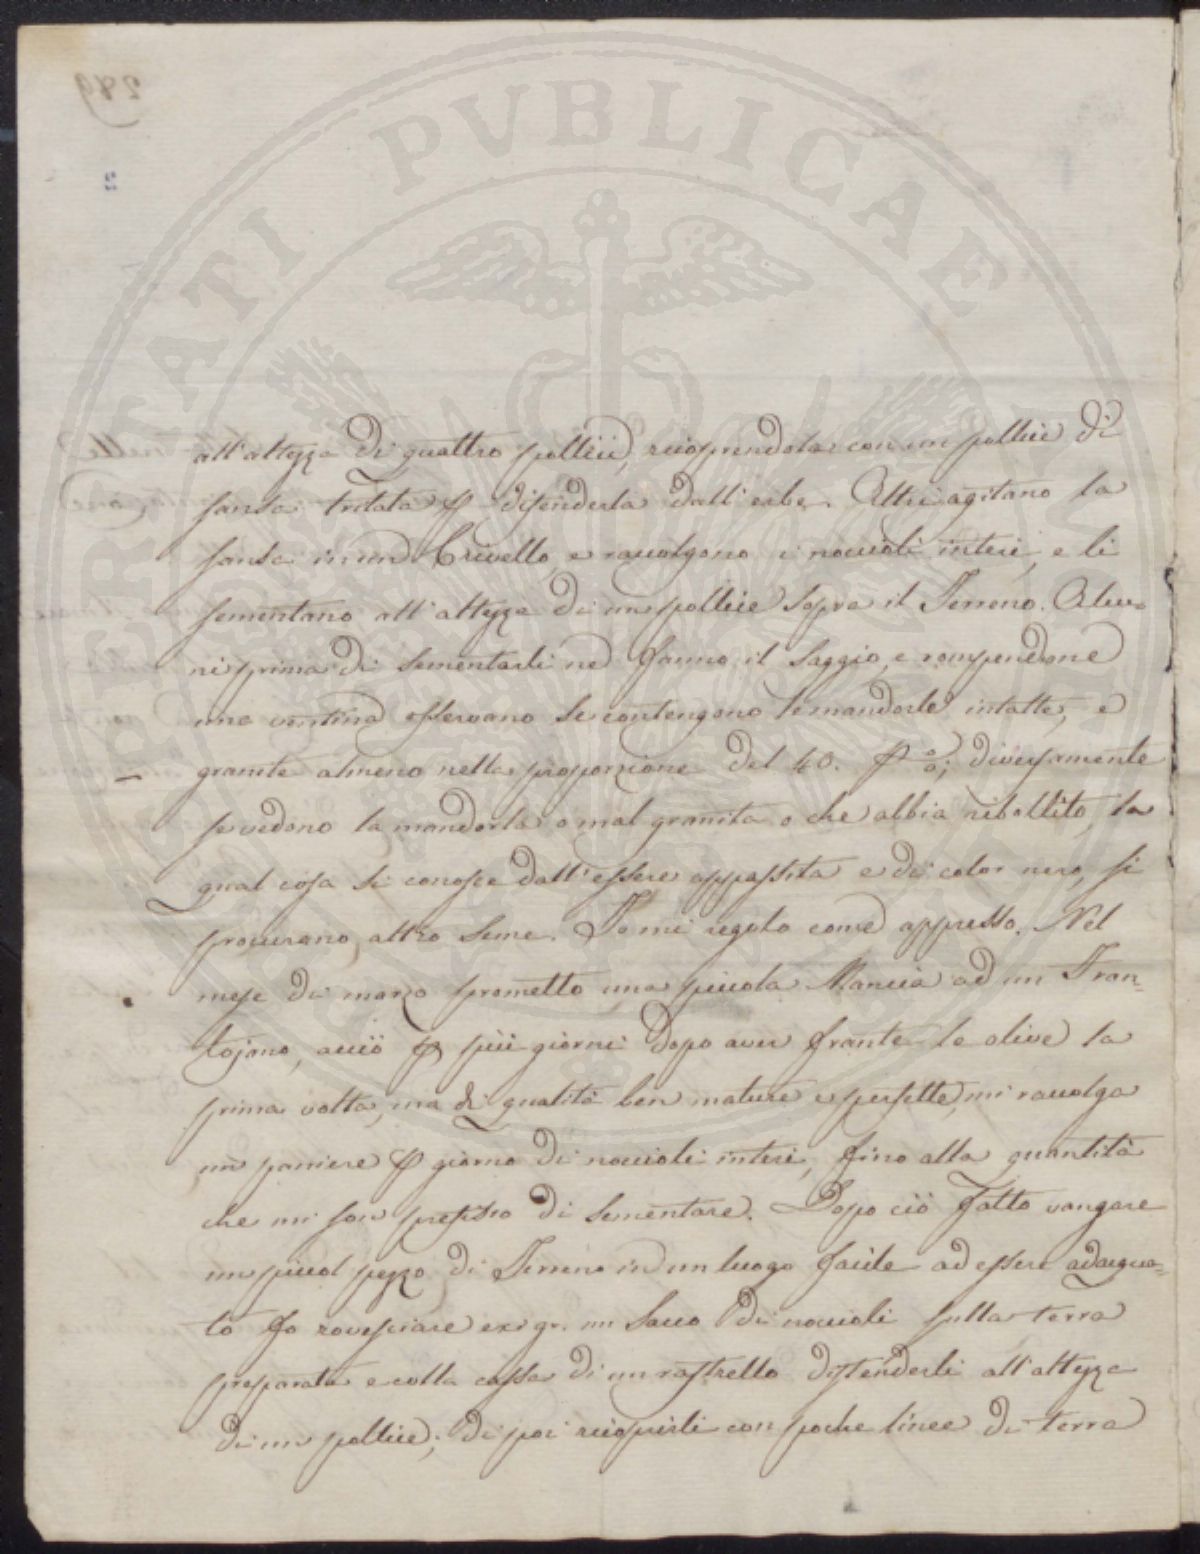 all'altezza di quattro pollici, ricoprendola con un pollice di
sansa tritata p difenderla dall'erbe. Altri agitano la
sansa in un Crivello, e raccolgono i noccioli interi, e li
sementano all'altezza di un pollice sopra il Terreno. Alcu=
ni prima di sementarli ne fanno il saggio, e rompendone
una ventina osservano se contengono le mandorle intatte, e
granite almeno nella proporzione del 40. p %; diversamente
se vedono la mandorla o mal granita o che abbia ribollito, la
qual cosa si conosce dall'essere appassita e di color nero, si
procurano altro seme. Io mi regolo come appresso. Nel
mese di marzo prometto una piccola Mancia ad un Fran=
tojano, acciò p più giorni dopo aver frante le olive la
prima volta, ma di qualità ben mature e perfette, mi raccolga
un paniere p giorno di noccioli interi, fino alla quantità
che mi son prefisso di sementare. Dopo ciò fatto vangare
un piccol pezzo di Terreno in un luogo facile ad essere adacqua=
to fo rovesciare ex. gr. un Sacco di noccioli sulla terra
preparata e colla cassa di un rastrello distenderli all'altezza
di un pollice; di poi ricoprirli con poche linee di terra
PERITATI PUBLICAE
289
2